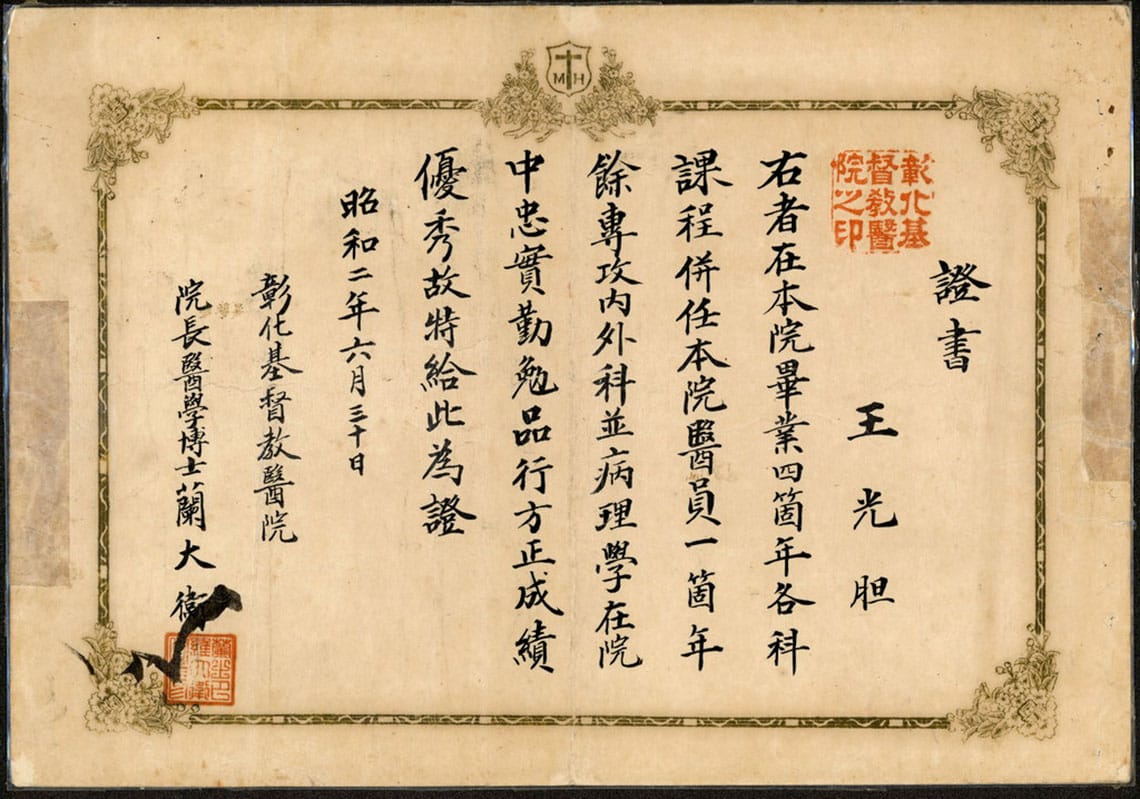 MH
證書
彰化基
督教醫
院之印
王光胆
右者在本院畢業四箇年各科
課程併任本院醫員一箇年
餘專攻內外科並病理學在院
中忠實勤勉品行方正成績
優秀故特給此為證
昭和二年六月三十日
彰化基督教醫院
院長醫學博士蘭大衛